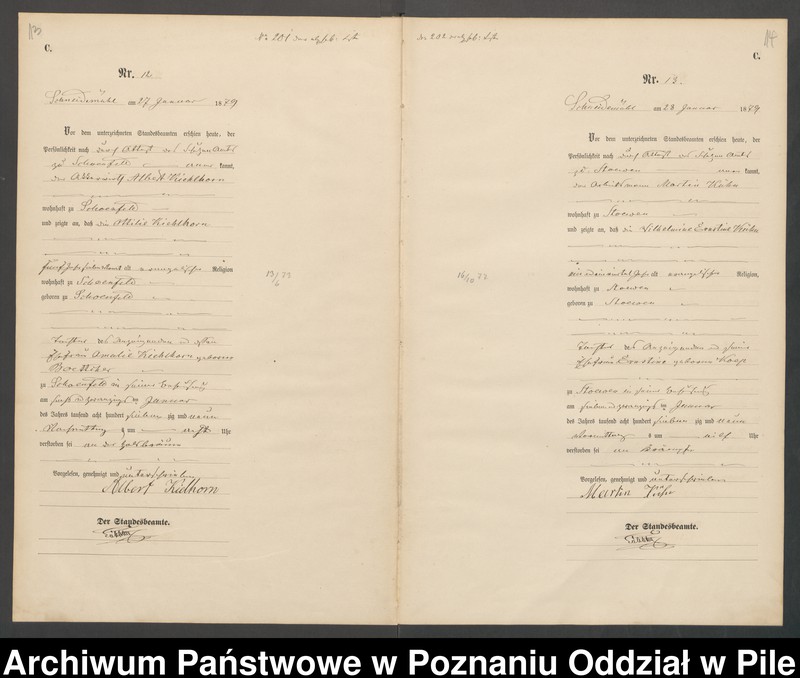 113
No 201
C.
Nr. 12.
Schneidemühl am 27 Januar 1879
Vor dem unterzeichneten Standesbeamten erschien heute, der
Persönlichkeit nach durch Attest des
zu Schoenfeld kannt,
der Albert Kiehlhorn
wohnhaft zu Schoenfeld
und zeigte an, daß die Ottilie Kiehlhorn
alt evangelischer Religion
wohnhaft zu Schoenfeld
geboren zu Schoenfeld
13/6 73
Tochter des Anzeigenden und dessen
Ehefrau Amalie Kiehlhorn geborene
Boettcher
zu Schoenfeld in seiner Behausung
am sechs und zwanzigsten Januar
des Jahres tausend acht hundert sieben zig und neun
Nachmittag um acht Uhr
verstorben sei an der Halsbräune
Vorgelesen, genehmigt und unterschrieben
Albert Kielhorn
Der Standesbeamte.
No 202
114
C.
Nr. 13.
Schneidemühl am 28 Januar 1879
Vor dem unterzeichneten Standesbeamten erschien heute, der
Persönlichkeit nach durch Attest des
zu Stoewen kannt,
der Arbeitsmann Martin Kühn
wohnhaft zu Stoewen
und zeigte an, daß die Wilhelmine Ernstine Kühn
alt evangelischer Religion,
wohnhaft zu Stoewen
geboren zu Stoewen
16/10 73
Tochter des Anzeigenden und seiner
Ehefrau Ernstine geborene
zu Stoewen in seiner Behausung
am sieben und zwanzigsten Januar
des Jahres tausend acht hundert sieben zig und neun
Vormittag um elf Uhr
verstorben sei an Krämpfe
Vorgelesen, genehmigt und unterschrieben
Martin
Der Standesbeamte.
Archiwum Państwowe w Poznaniu Oddział w Pile